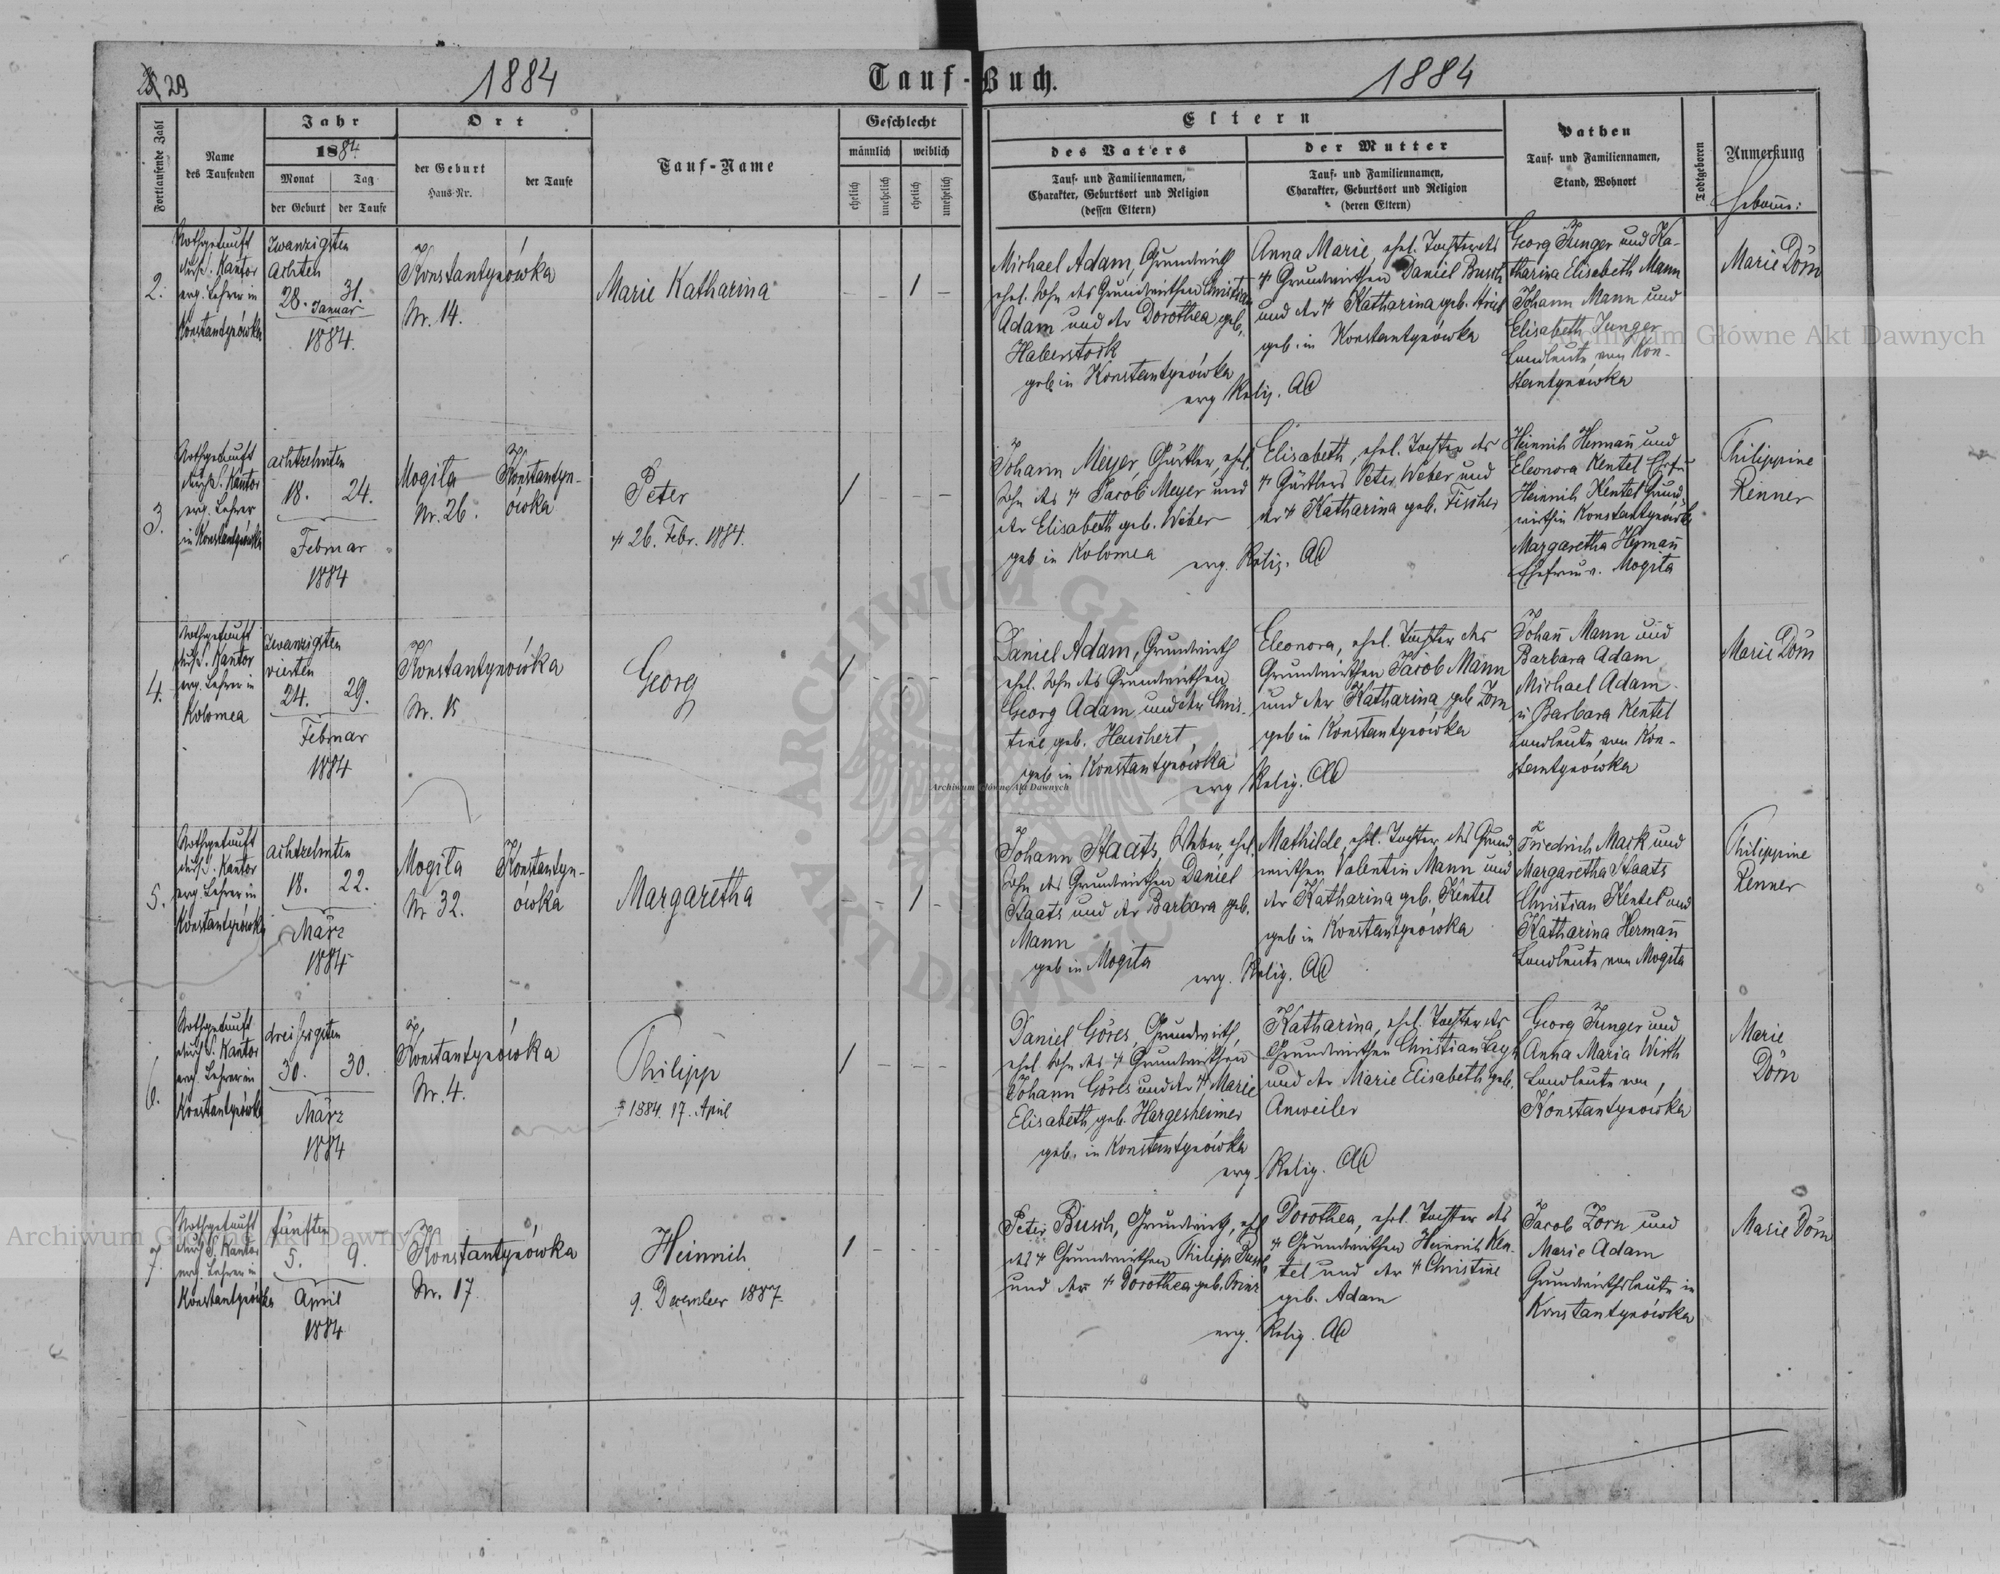 29
1884
Tauf-Buch.
1884
Fortlaufende Zahl
Name
des Taufenden
Jahr
1884
Monat
Tag
der Geburt
der Taufe
Ort
der Geburt
Haus-Nr.
der Taufe
Tauf-Name
Geschlecht
männlich
weiblich
ehelich
unehelich
ehelich
unehelich
Eltern
des Vaters
Tauf- und Familiennamen,
Charakter, Geburtsort und Religion
(dessen Eltern)
der Mutter
Tauf- und Familiennamen,
Charakter, Geburtsort und Religion
(deren Eltern)
Pathen
Tauf- und Familiennamen,
Stand, Wohnort
Todtgeboren
Anmerkung
Hebamme:
2.
Nothgetauft
durch S. Kantor
erg. Lehrer in
Konstantynówka
Zwanzigsten
achten
28. 31.
Januar
1884.
Konstantynówka
Nr. 14.
Marie Katharina
– – 1 –
Michael Adam, Grundwirth
ehel. Sohn des Grundwirthen Christian
Adam und der Dorothea, geb.
Haberstock
geb. in Konstantynówka
erg. Relig. AC
Anna Marie, ehel. Tochter des
Grundwirthen Daniel Busch
und der Katharina geb.
geb. in Konstantynówka
Georg Junger und Ka-
tharina Elisabeth Mann
Johann Mann und
Elisabeth Junger
Landleute von Kon-
stantynówka
Marie Dörn
3.
Nothgetauft
durch S. Kantor
erg. Lehrer
in Konstantynówka
achtzehnten
18. 24.
Februar
1884
Mogiła
Nr. 26.
Konstantyn-
ówka
Peter
26. Febr. 1884.
1 – – –
Johann Meyer, Gärtler, ehel.
Sohn des Jacob Meyer und
der Elisabeth geb. Weber
geb in Kolomea
erg. Relig. AC
Elisabeth, ehel. Tochter des
Gärtlers Peter Weber und
der Katharina geb. Fischer
Heinrich Hermañ und
Eleonora Kentel
Heinrich Kentel Grund-
wirth in Konstantynówka
Margaretha Hermañ
Ehefrau v. Mogiła
Philippine
Renner
4.
Nothgetauft
durch S. Kantor
erg. Lehrer in
Kolomea
Zwanzigsten
vierten
24. 29.
Februar
1884
Konstantynówka
Nr. 15
Georg
1 – – –
Daniel Adam, Grundwirth
ehel. Sohn des Grundwirthen
Georg Adam und der Chris-
tine geb. Haushert
geb in Konstantynówka
erg Relig. AC
Eleonora, ehel. Tochter des
Grundwirthen Jacob Mann
und der Katharina geb Zorn
geb in Konstantynówka
Johañ Mann und
Barbara Adam
Michael Adam
u Barbara Kentel
Landleute von Kon-
stantynówka
Marie Dörn
5.
Nothgetauft
durch S. Kantor
erg. Lehrer in
Konstantynówka
achtzehnten
18. 22.
März
1884
Mogiła
Nr 32.
Konstantyn-
ówka
Margaretha
– – 1 –
Johann Staats, Weber, ehel.
Sohn des Grundwirthen Daniel
Staats und der Barbara geb.
Mann
geb in Mogiła
erg. Relig. AC
Mathilde, ehel. Tochter des Grund-
wirthen Valentin Mann und
der Katharina geb. Kentel
geb in Konstantynówka
Friedrich Mack und
Margaretha Staats
Christian Kentel und
Katharina Hermañ
Landleute von Mogiła
Philippine
Renner
6.
Nothgetauft
durch S. Kantor
erg. Lehrer in
Konstantynówka
dreißigsten
30. 30.
März
1884
Konstantynówka
Nr. 4.
Philipp
† 1884. 17. April
1 – – –
Daniel Göres, Grundwirth,
ehel. Sohn des Grundwirthen
Johann Göres und der Marie
Elisabeth, geb. Hargesheimer
geb. in Konstantynówka
erg. Relig. AC
Katharina, ehel. Tochter des
Grundwirthen Christian
und der Marie Elisabeth geb.
Anweiler
Georg Junger und
Anna Maria Wirth
Landleute von
Konstantynówka
Marie
Dörn
7.
Nothgetauft
durch S. Kantor
erg. Lehrer in
Konstantynówka
fünften
5. 9.
April
1884
Konstantynówka
Nr. 17
Heinrich
9. December 1887.
1 – – –
Peter Busch, Grundwirth, ehel
des Grundwirthen Philipp Busch
und der Dorothea geb. Prinz
erg. Relig. AC
Dorothea, ehel. Tochter des
Grundwirthen Heinrich Ken-
tel und der Christine
geb. Adam
Jacob Zorn und
Marie Adam
Grundwirthsleute in
Konstantynówka
Marie Dörn
Archiwum Główne Akt Dawnych
Archiwum Główne Akt Dawnych
Archiwum Główne Akt Dawnych
ARCHIWUM GŁÓWNE AKT DAWNYCH